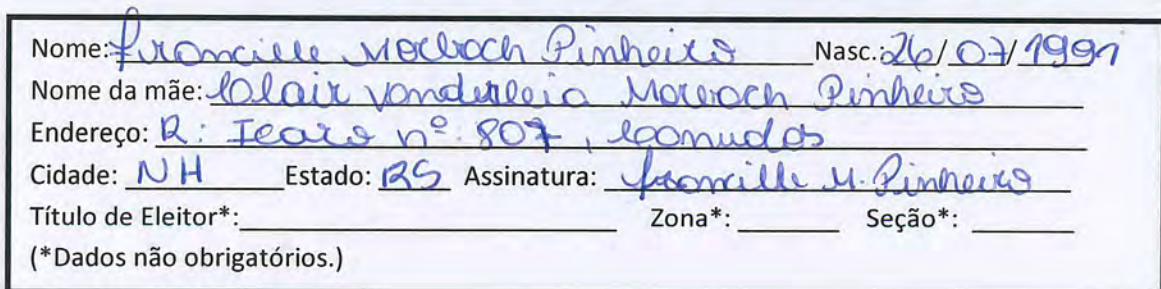 Nome: Francille Morbach Pinheiro Nasc.: 26/07/1991
Nome da mãe: Clair Vanderleia Morbach Pinheiro
Endereço: R: Icaro nº 807, Canudos
Cidade: NH Estado: RS Assinatura: Francille M. Pinheiro
Título de Eleitor*: Zona*: Seção*:
(*Dados não obrigatórios.)